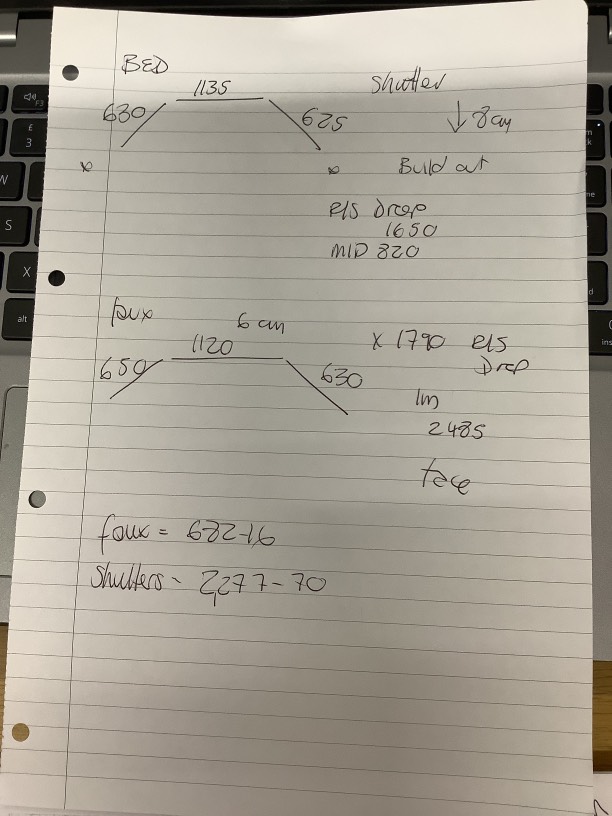 BED
1135
Shutter
630
625
↓ 8cm
x
x
Build out
R/S Drop
1650
MID 820
faux
6 cm
1120
x 1790 R/S
Drop
650
630
2485
face
faux = 682-16
Shutters - 2,277-70